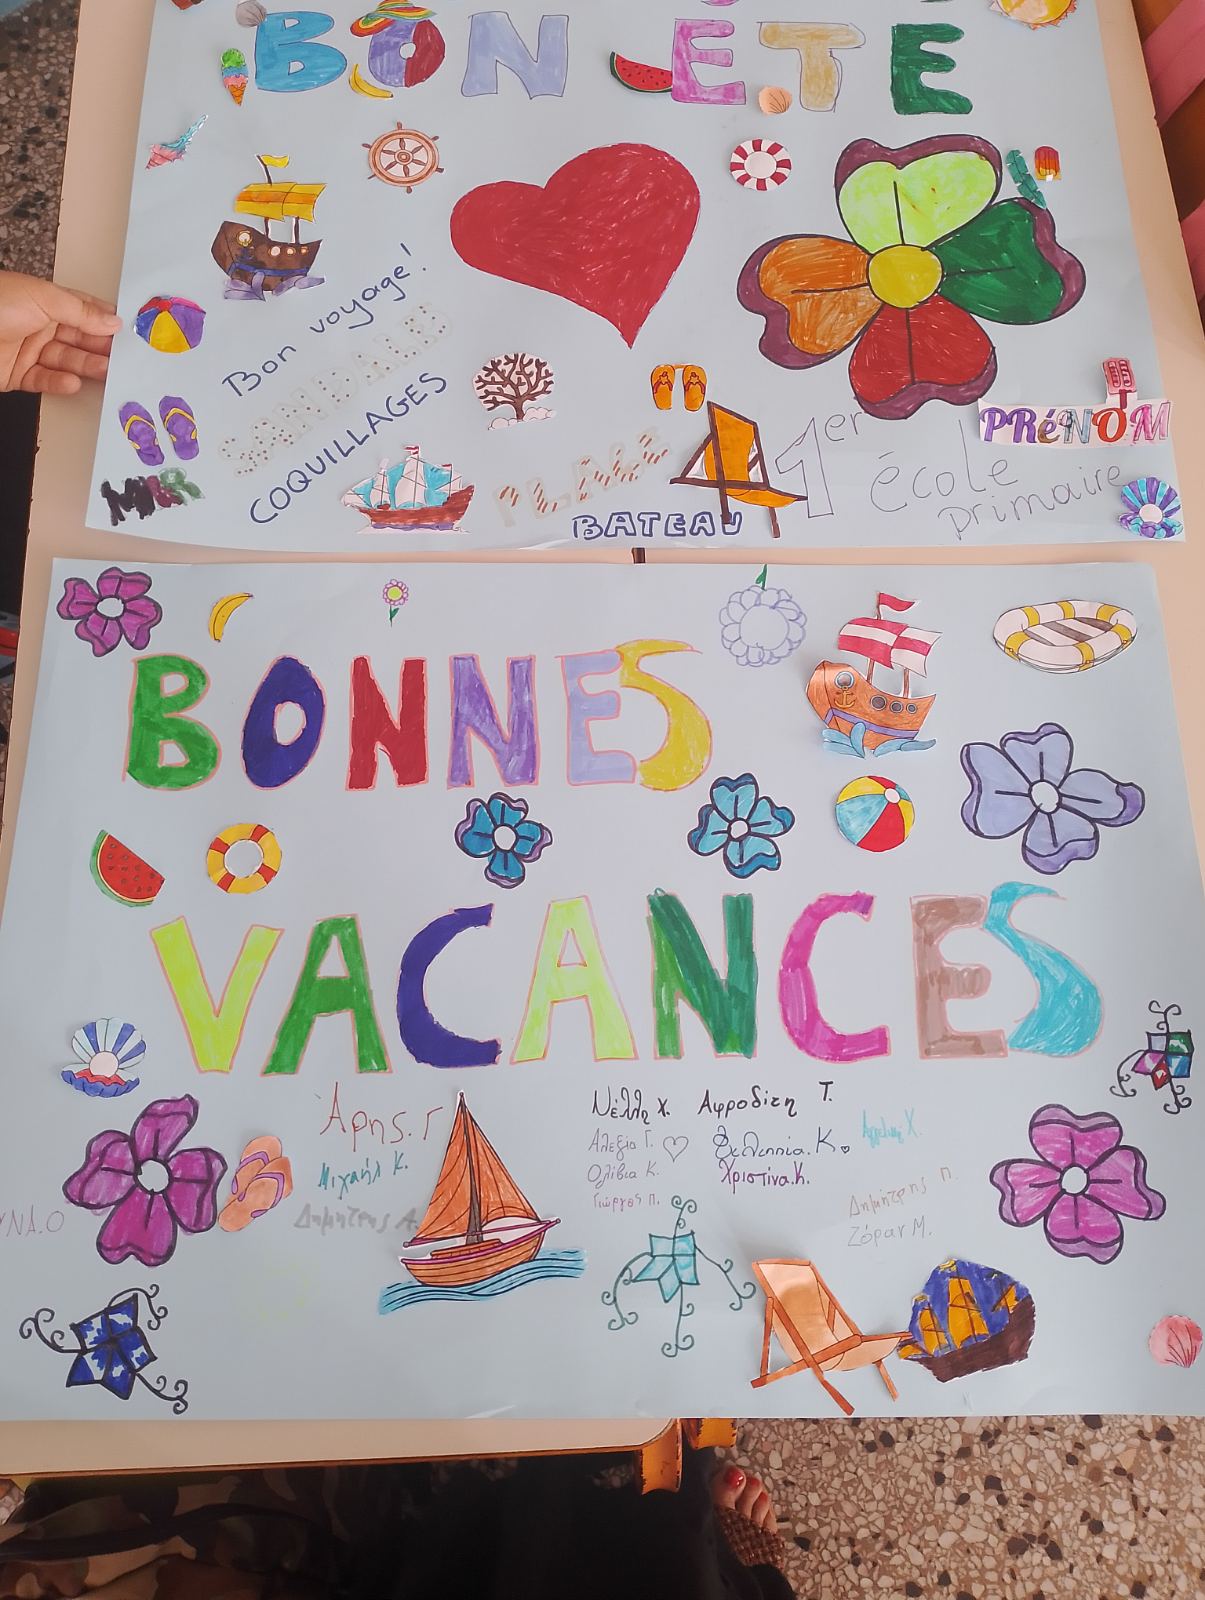 BON ÉTÉ
Bon voyage!
SANDALES
COQUILLAGES
MER
PLAGE
BATEAU
1er
école
primaire
PRéNOM
BONNES
VACANCES
Άρης. Γ
Μιχαήλ Κ.
Δημήτρης Λ.
Νέλλη Χ. Αφροδίτη Τ.
Αλεξία Γ. Φιλιππία. Κ.
Ολίβια Κ. Χριστίνα. Κ.
Γιώργος Π.
Αγγελική Χ.
Δημήτρης Π.
Ζόραν Μ.